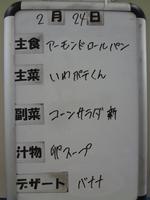 2月24日
主食 アーモンドロールパン
主菜 いわポテくん
副菜 コーンサラダ
汁物 卵スープ
デザート バナナ